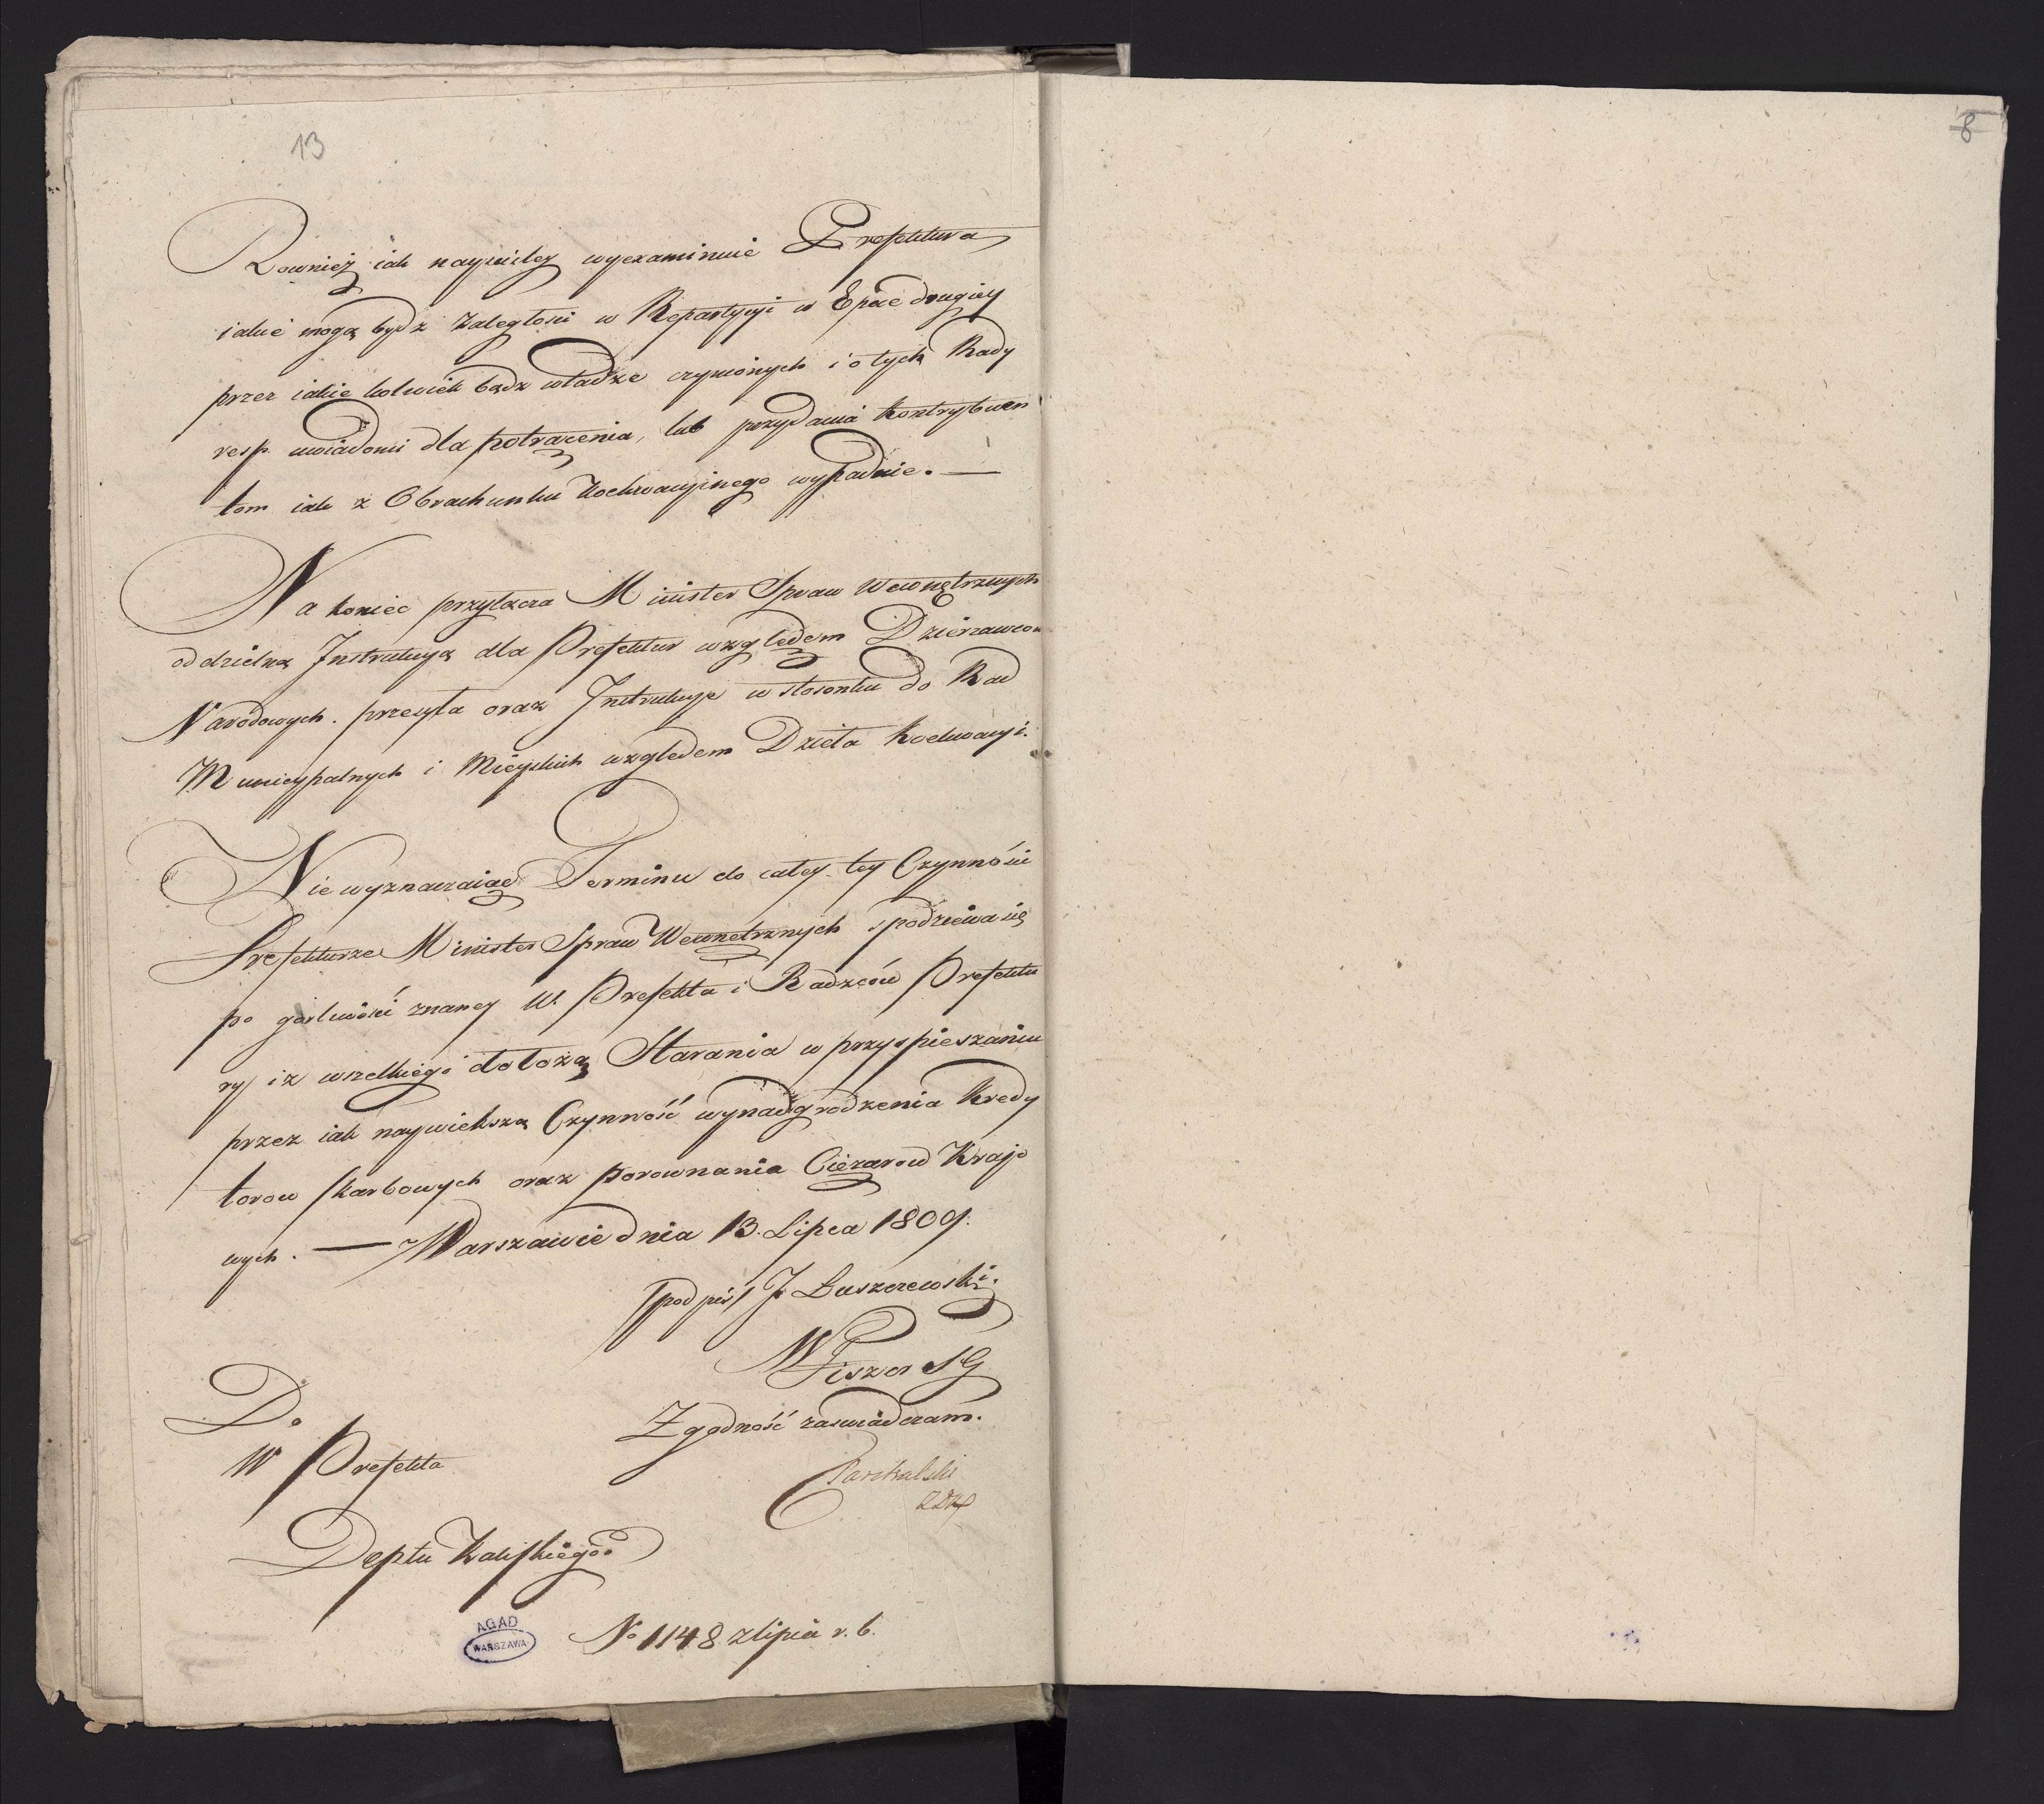 13
8
Rownież iak nayściśley wyexaminuie Prefektura
iakie mogą bydź zaległości w Repartycyi w Epoce drugiey
przez iakie kolwiek bądz władze czynionych i o tych Rady
resp. uwiadomi dla potrącenia, lub przydania kontrybuen
tom iak z Obrachunku Koekwacyinego wypadnie. —
Na koniec przyłącza Minister Spraw Wewnętrznych
oddzielną Instrukcyą dla Prefektur względem Dzierzawcow
Narodowych. przesyła oraz Instrukcye w stosonku do Rad
Municypalnych i Mieyskich względem Dzieła Koekwacyi.
Nie wyznaczaiąc Terminu do całey tey Czynności
Prefekturze Minister Spraw Wewnętrznych spodziewa się
po gorliwości znaney W. Prefekta i Radzców Prefektu
ry iz wszelkiego dołożą Starania w przyspieszaniu
przez iak naywiększą Czynność wynadgrodzenia Kredy
torow skarbowych oraz porownania Cięzarow Krajo
wych. — w Warszawie dnia 13. Lipca 1809.
/podpis/ J Łuszczewski.
W Fiszer SG
Zgodność zaswiadczam.
Do
W Prefekta
Deptu Kaliskiego
AGAD
WARSZAWA
No 1148 z lipca r. b.